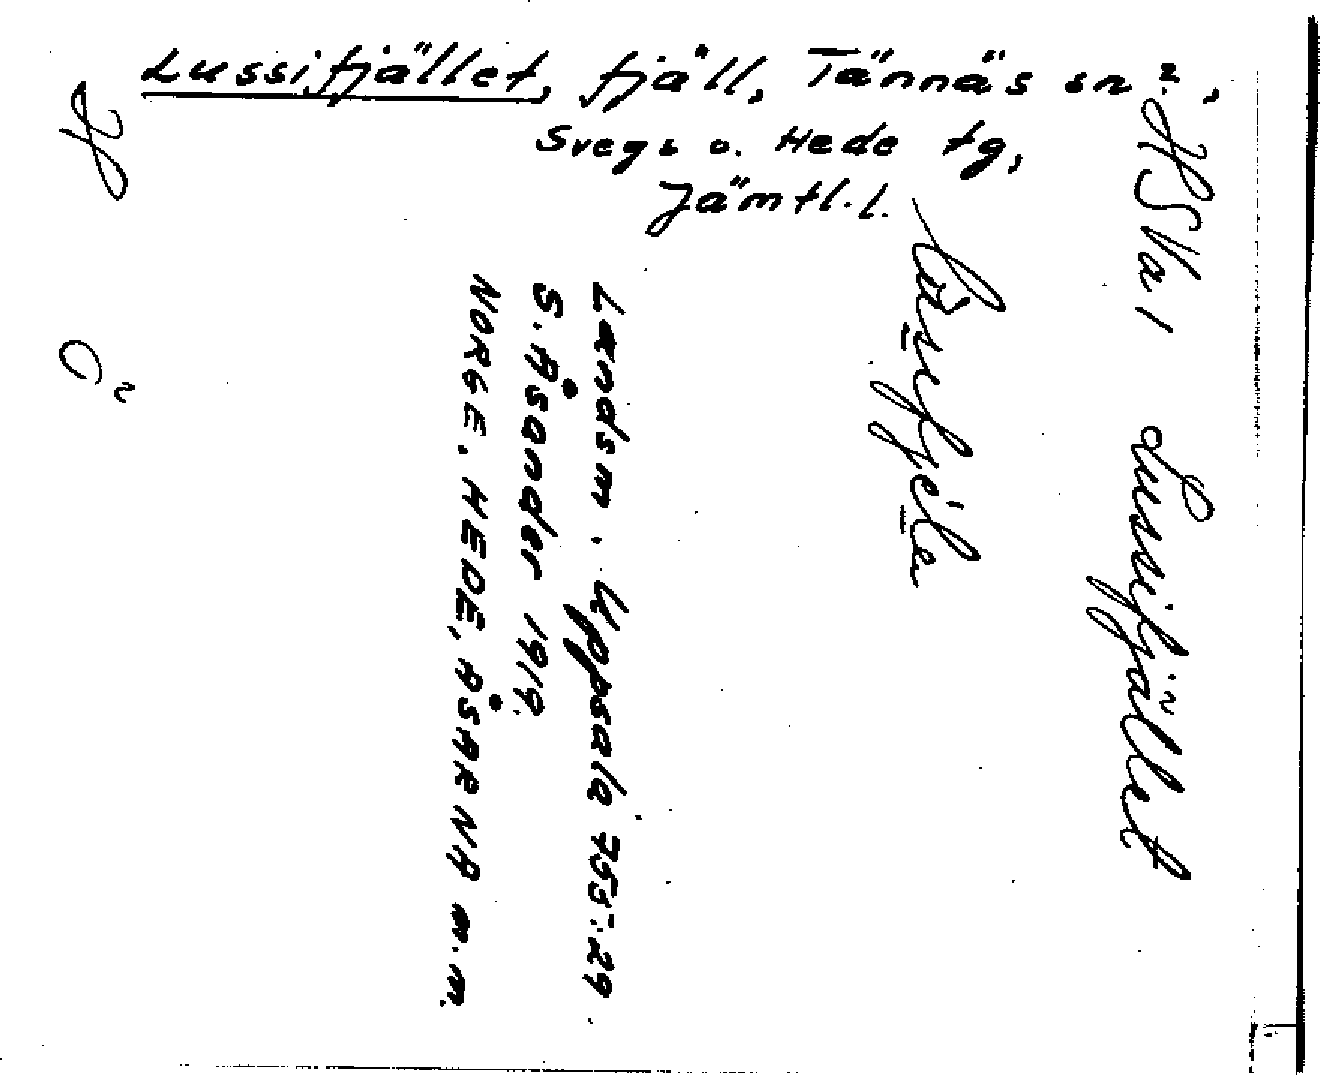 Lussifjället, fjäll, Tännäs sn?,
Svegs o. Hede tg,
Jämtl. l.
HSVa 1 Lussifjället
Landsm. Uppsala 755:29.
S. Åsander 1919.
NORGE. HEDE, ÅSARNA m.m.
H